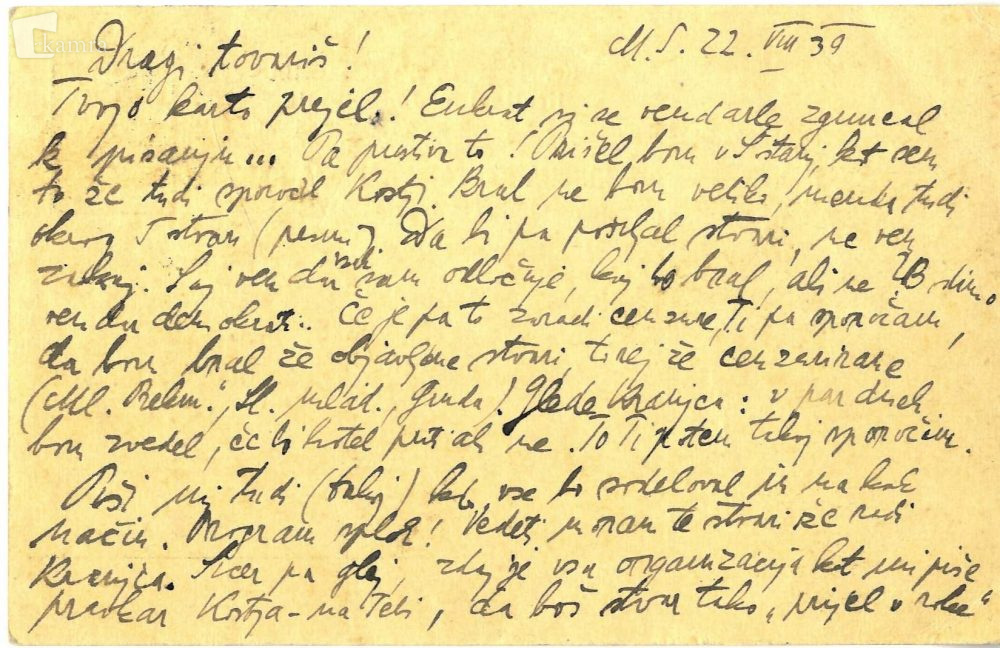 kamra
M. S. 22. VIII 39
Dragi tovariš!
Tvojo karto prejel.! Enkrat si se vendarle zganil
k pisanju... Pa pustiva to! Prišel bom v Šoštanj, kot sem
to že tudi sporočil Kostji. Bral ne bom veliko, menda tudi
okrog 5 strani (pesmi). Da bi pa pošiljal stvari, ne vem
zakaj. Saj vendar vsak sam odločuje, kaj bo bral, ali ne?
vendar demokrati.. Če je pa to zaradi cenzure, Ti pa sporočam,
da bom bral že objavljene stvari, torej že cenzurirane
(Ml. Prekm.", Sl. mlad., Gruda). Glede Kranjca: v par dneh
bom zvedel, če bi hotel priti ali ne. To Ti potem takoj sporočim.
Piši mi tudi (takoj) kdo vse bo sodeloval in na kak
način. Program sploh! Vedeti moram te stvari že radi
Kranjca. Sicer pa glej, zdaj je vsa organizacija kot mi piše
pravkar Kostja - na Tebi, da boš stvar tako „prijel v roke"